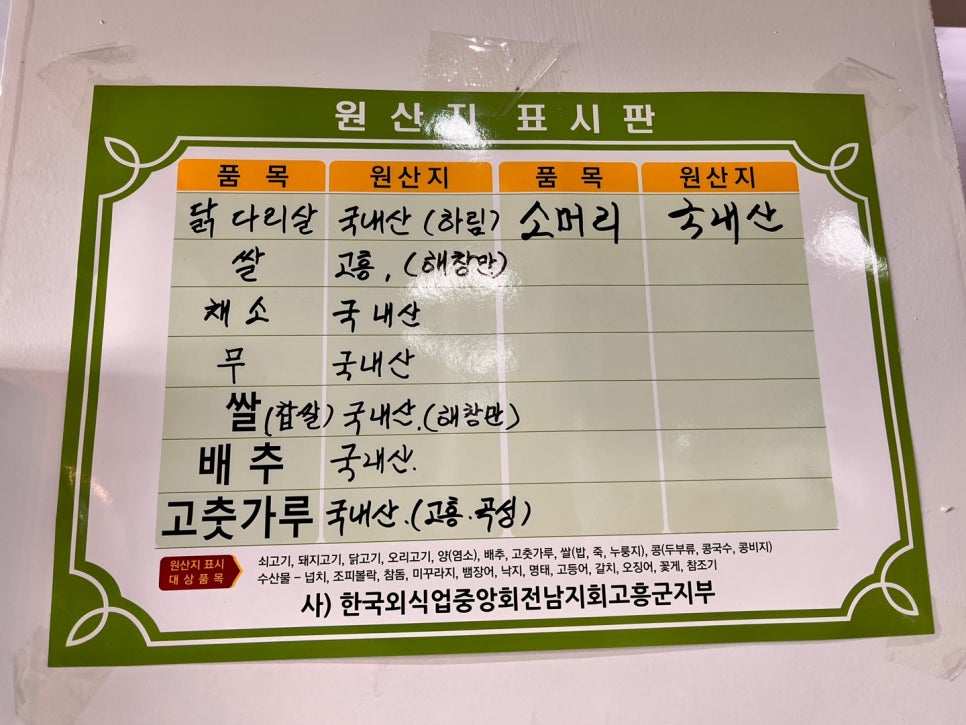 원산지 표시판
품목 원산지 품목 원산지
닭 다리살 국내산 (하림) 소머리 국내산
쌀 고흥, (해창만)
채소 국내산
무 국내산
쌀(찹쌀) 국내산.(해창만)
배추 국내산.
고춧가루 국내산.(고흥.곡성)
원산지 표시
대상품목
쇠고기, 돼지고기, 닭고기, 오리고기, 양(염소), 배추, 고춧가루, 쌀(밥, 죽, 누룽지), 콩(두부류, 콩국수, 콩비지)
수산물 – 넙치, 조피볼락, 참돔, 미꾸라지, 뱀장어, 낙지, 명태, 고등어, 갈치, 오징어, 꽃게, 참조기
사) 한국외식업중앙회전남지회고흥군지부